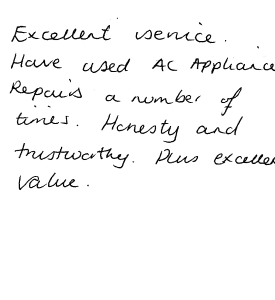 Excellent service.
Have used AC Appliance
Repairs a number of
times. Honesty and
trustworthy. Plus excellen
value.